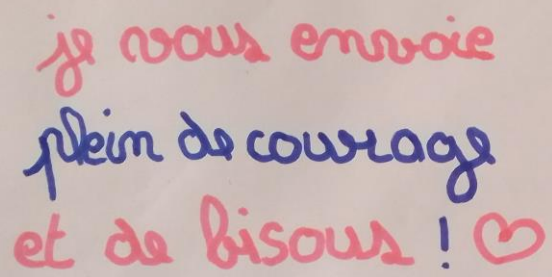 je vous envoie
plein de courage
et de bisous ! ♡